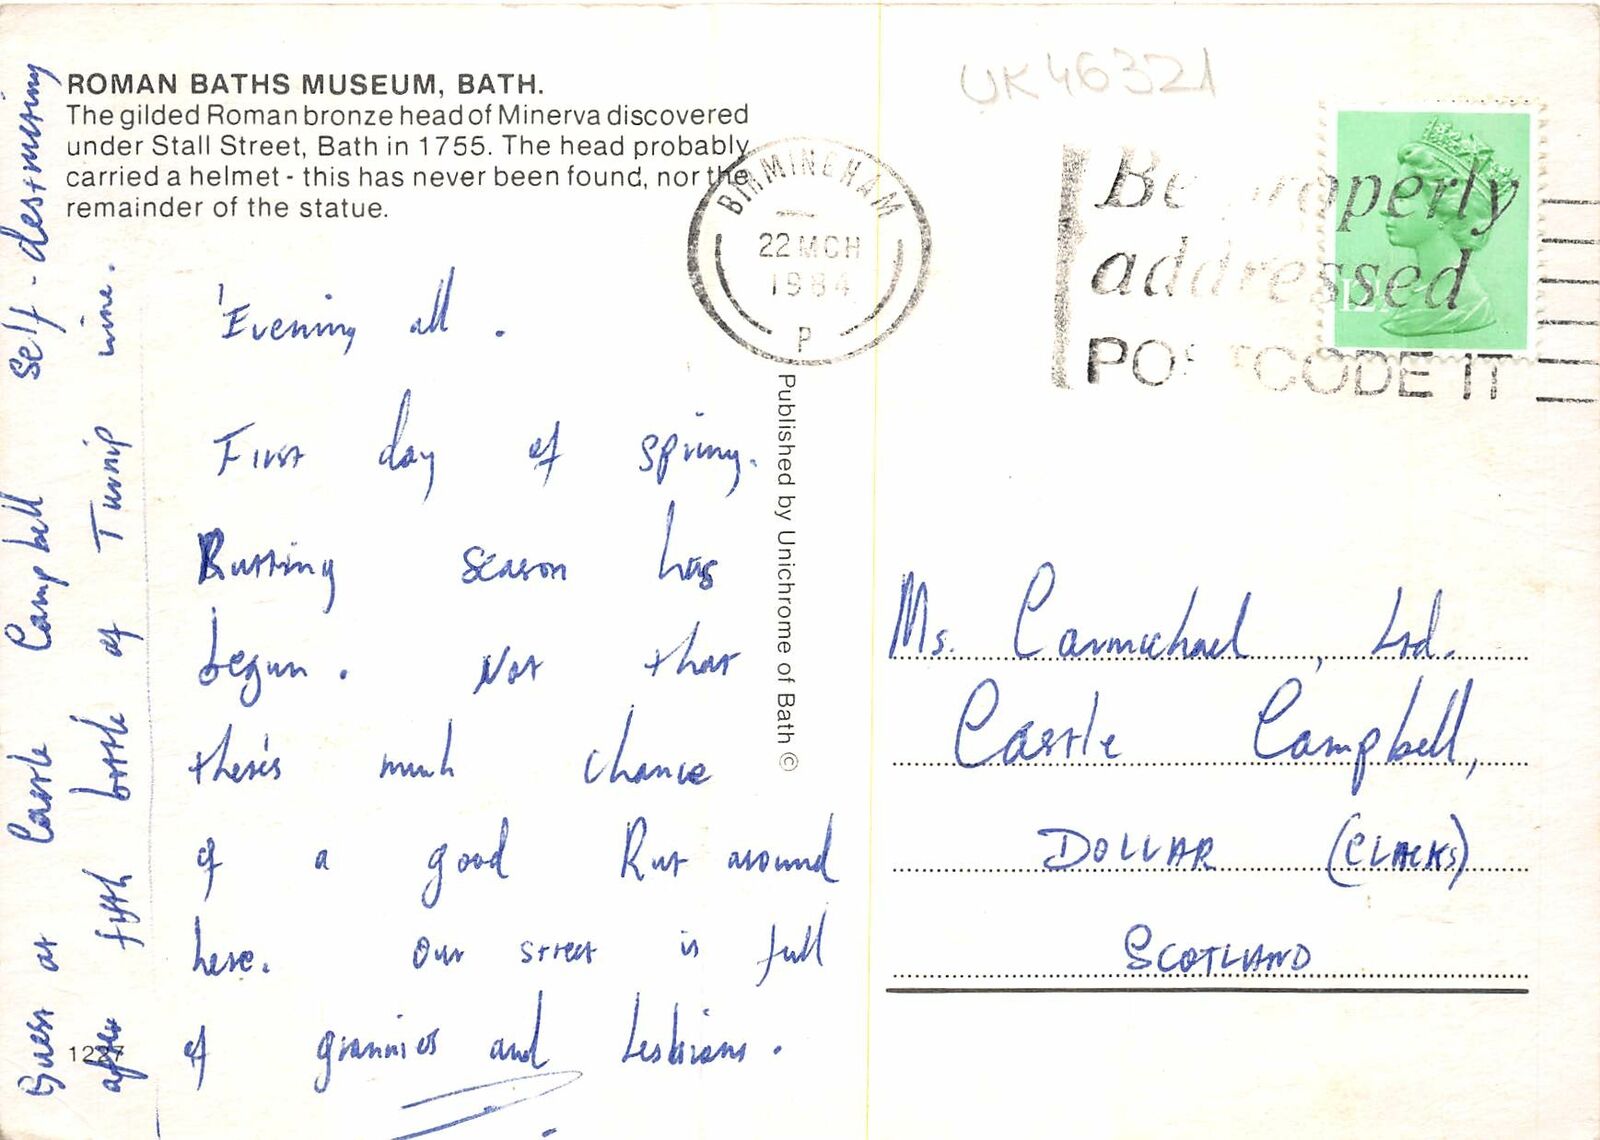 ROMAN BATHS MUSEUM, BATH.
The gilded Roman bronze head of Minerva discovered
under Stall Street, Bath in 1755. The head probably
carried a helmet - this has never been found, nor the
remainder of the statue.
'Evening all.
First day of spring.
Rutting season has
begun. Not that
there's much chance
of a good Rut around
here. Our street is full
of grannies and Lesbians.
Guest at Castle Campbell self-destructing
after fifth bottle of Turnip wine.
1227
Published by Unichrome of Bath ©
BIRMINGHAM
22 MCH
1984
P
UK46321
Be properly
addressed
POSTCODE IT
12½
Ms. Carmichael, Ltd.
Castle Campbell,
DOLLAR (CLACKS)
SCOTLAND